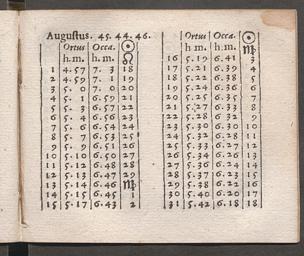 Auguſtus. 45. 44. 46.
Ortus Occa. ☉
h. m. h. m. ♌
1 4.57 7. 3 18
2 4.59 7. 1 19
3 5. 0 7. 0 20
4 5. 1 6.59 21
5 5. 3 6.57 22
6 5. 4 6.56 23
7 5. 6 6.54 24
8 5. 7 6.53 25
9 5. 9 6.51 26
10 5.10 6.50 27
11 5.12 6.48 28
12 5.13 6.47 29
13 5.14 6.46 ♍
14 5.15 6.45 1
15 5.17 6.43 2
Ortus Occa. ☉
h. m. h. m. ♍
16 5.19 6.41 3
17 5.21 6.39 4
18 5.22 6.38 5
19 5.24 6.36 6
20 5.25 6.35 7
21 5.27 6.33 8
22 5.28 6.32 9
23 5.30 6.30 10
24 5.32 6.28 11
25 5.33 6.27 12
26 5.34 6.26 13
27 5.36 6.24 14
28 5.37 6.23 15
29 5.38 6.22 16
30 5.40 6.20 17
31 5.42 6.18 18